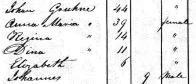 Johan Goehne 44 "
Anna Maria " 39 female
Regina " 14 "
Dina " 11 "
Elizabeth 6 "
Johannes 9 Male